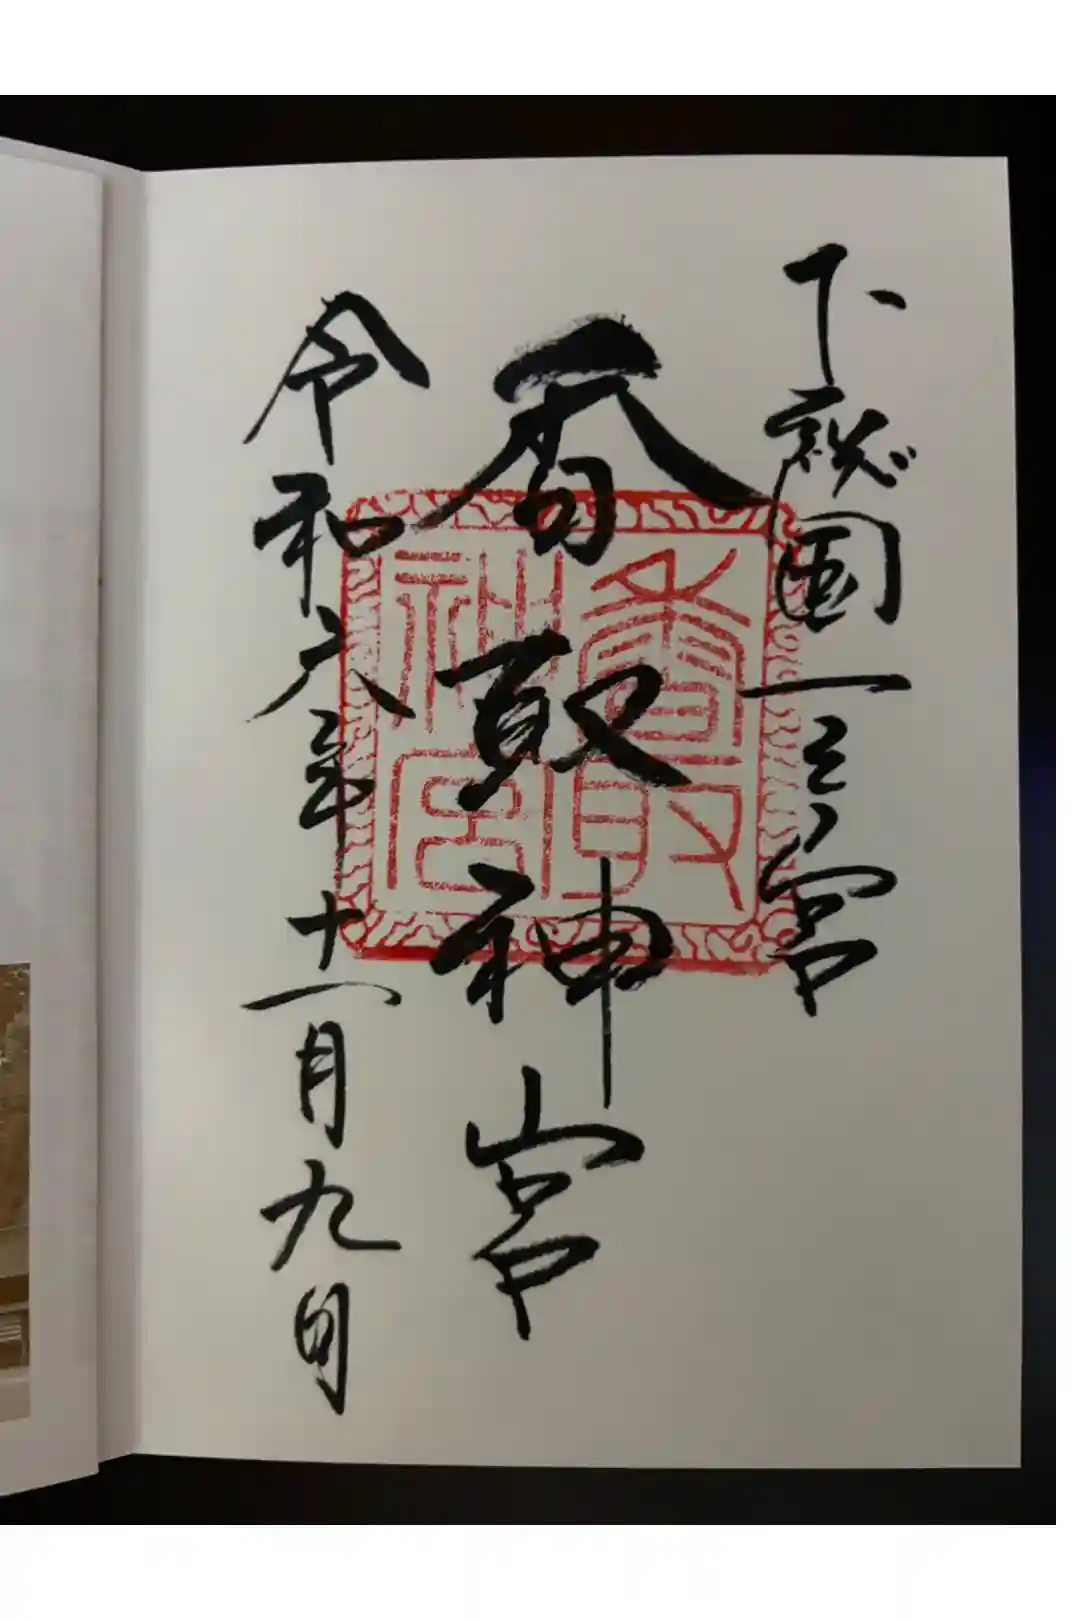 下総国一之宮
香取神宮
令和六年十一月九日
香取
神宮